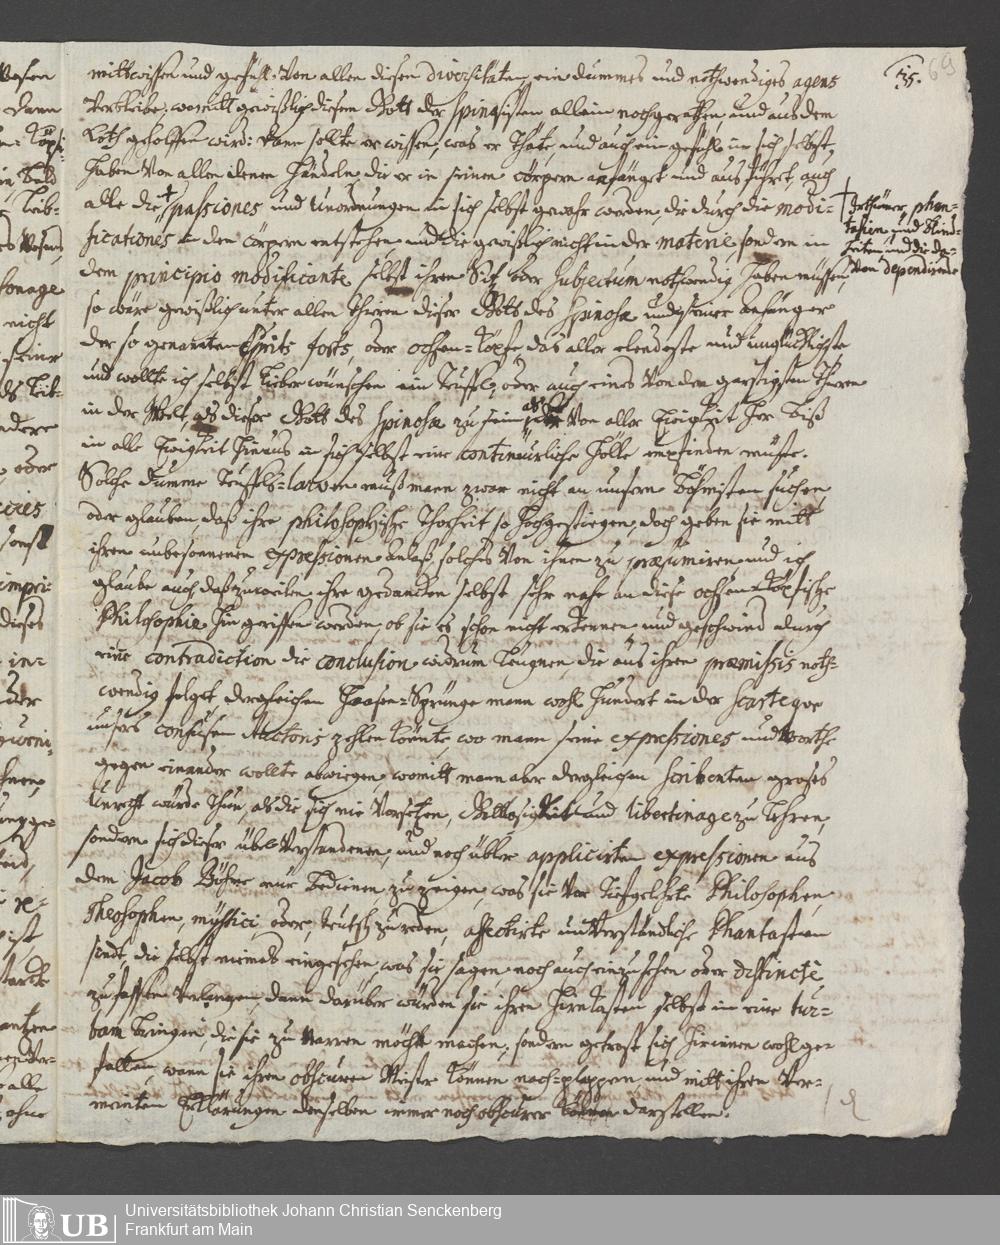 35. 69
mittwissen und gefühl von allen diesen diversitäten, ein dummes und nothwendiges agens
verbleibe, womitt gewißlich diesem Gott der Spinosisten allein noch gerathen, und aus dem
Koth geholffen wird: dann sollte er wissen, was er thäte, und auch ein gefühl in sich selbst,
haben von allen denen händeln, die er in seinen cörpern anfänget und ausführet, auch
alle die † passiones und unordnungen in sich selbst gewahr werden, die durch die modi-
ficationes in den cörpern entstehen und die gewißlich nicht in der materie, sondern in
dem principio modificante selbst ihren Sitz oder subjectum nothwendig haben müssen,
† Irrthümer, phan-
tasien und Blind-
heiten und die da-
von dependirende
so wäre gewißlich unter allen thieren dieser Gott des Spinosæ und seiner anhänger
der so genannten Esprits forts, oder ochsen-köpfe das aller elendeste und unglücklichste
und wollte ich selbst lieber wünschen ein Teuffel, oder auch eines von den garstigsten thieren
in der Welt, als dieser Gott des Spinosæ zu sein, als der von aller Ewigkeit her biß
in alle Ewigkeit hinaus in sich selbst eine continuirliche hölle empfinden müste.
Solche dumme Teuffels-larven muß mann zwar nicht an unsern Böhmisten suchen,
oder glauben daß ihre philosophische thorheit so hoch gestiegen, doch geben sie mitt
ihren unbesonnenen expressionen anlaß solches von ihnen zu præsumiren und ich
glaube auch daß zuweilen ihre gedancken selbst sehr nahe an diese ochsen-köpfische
Philosophie hin gerissen werden, ob sie es schon nicht erkennen und geschwind durch
eine contradiction die conclusion widrum leugnen, die aus ihren præmissis noth-
wendig folget, dergleichen Haasen-Sprünge mann wohl hundert in der scarteque
unsers confusen Autoris zehlen könnte, wo mann seine expressiones und worthe
gegen einander wollte abwiegen, womitt mann aber dergleichen scribenten groses
Unrecht würde thun, als die sich nie vorsetzen, Gottlosigkeit und libertinage zu lehren,
sondern sich dieser übel verstandenen, und noch übler applicirten expressionen aus
dem Jacob Böhme nur bedienen, zu zeigen, was sie vor tiefgelehrte Philosophen,
Theosophen, mystici, oder, teutsch zu reden, affectirte unverständliche Phantasten
sindt, die selbst niemals eingesehen, was sie sagen, noch auch einzusehen oder distincte
zu fassen verlangen, dann darüber würden sie ihren hirnkasten selbst in eine tur-
bam bringen, die sie zu Narren möchte machen, sondern getrost sich hierinnen wohl ge-
fallen, wann sie ihren obscuren Meister können nach-plappern, und mitt ihren ver-
meinten Erklärungen denselben immer noch obscurer darstellen.
UB
Universitätsbibliothek Johann Christian Senckenberg
Frankfurt am Main